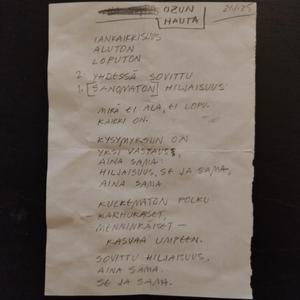 OZUN
HAUTA
IANKAIKKISUUS
ALUTON
LOPUTON
2. YHDESSÄ SOVITTU
1. [SANOMATON] HILJAISUUS
MIKÄ EI ALA, EI LOPU.
KAIKKI ON.
KYSYMYKSIIN ON
YKSI VASTAUS,
AINA SAMA:
HILJAISUUS, SE JA SAMA,
AINA SAMA.
KULKEMATON POLKU
KARHUKAISET,
MENNINKÄISET –
KASVAA UMPEEN.
SOVITTU HILJAISUUS,
AINA SAMA.
SE JA SAMA.